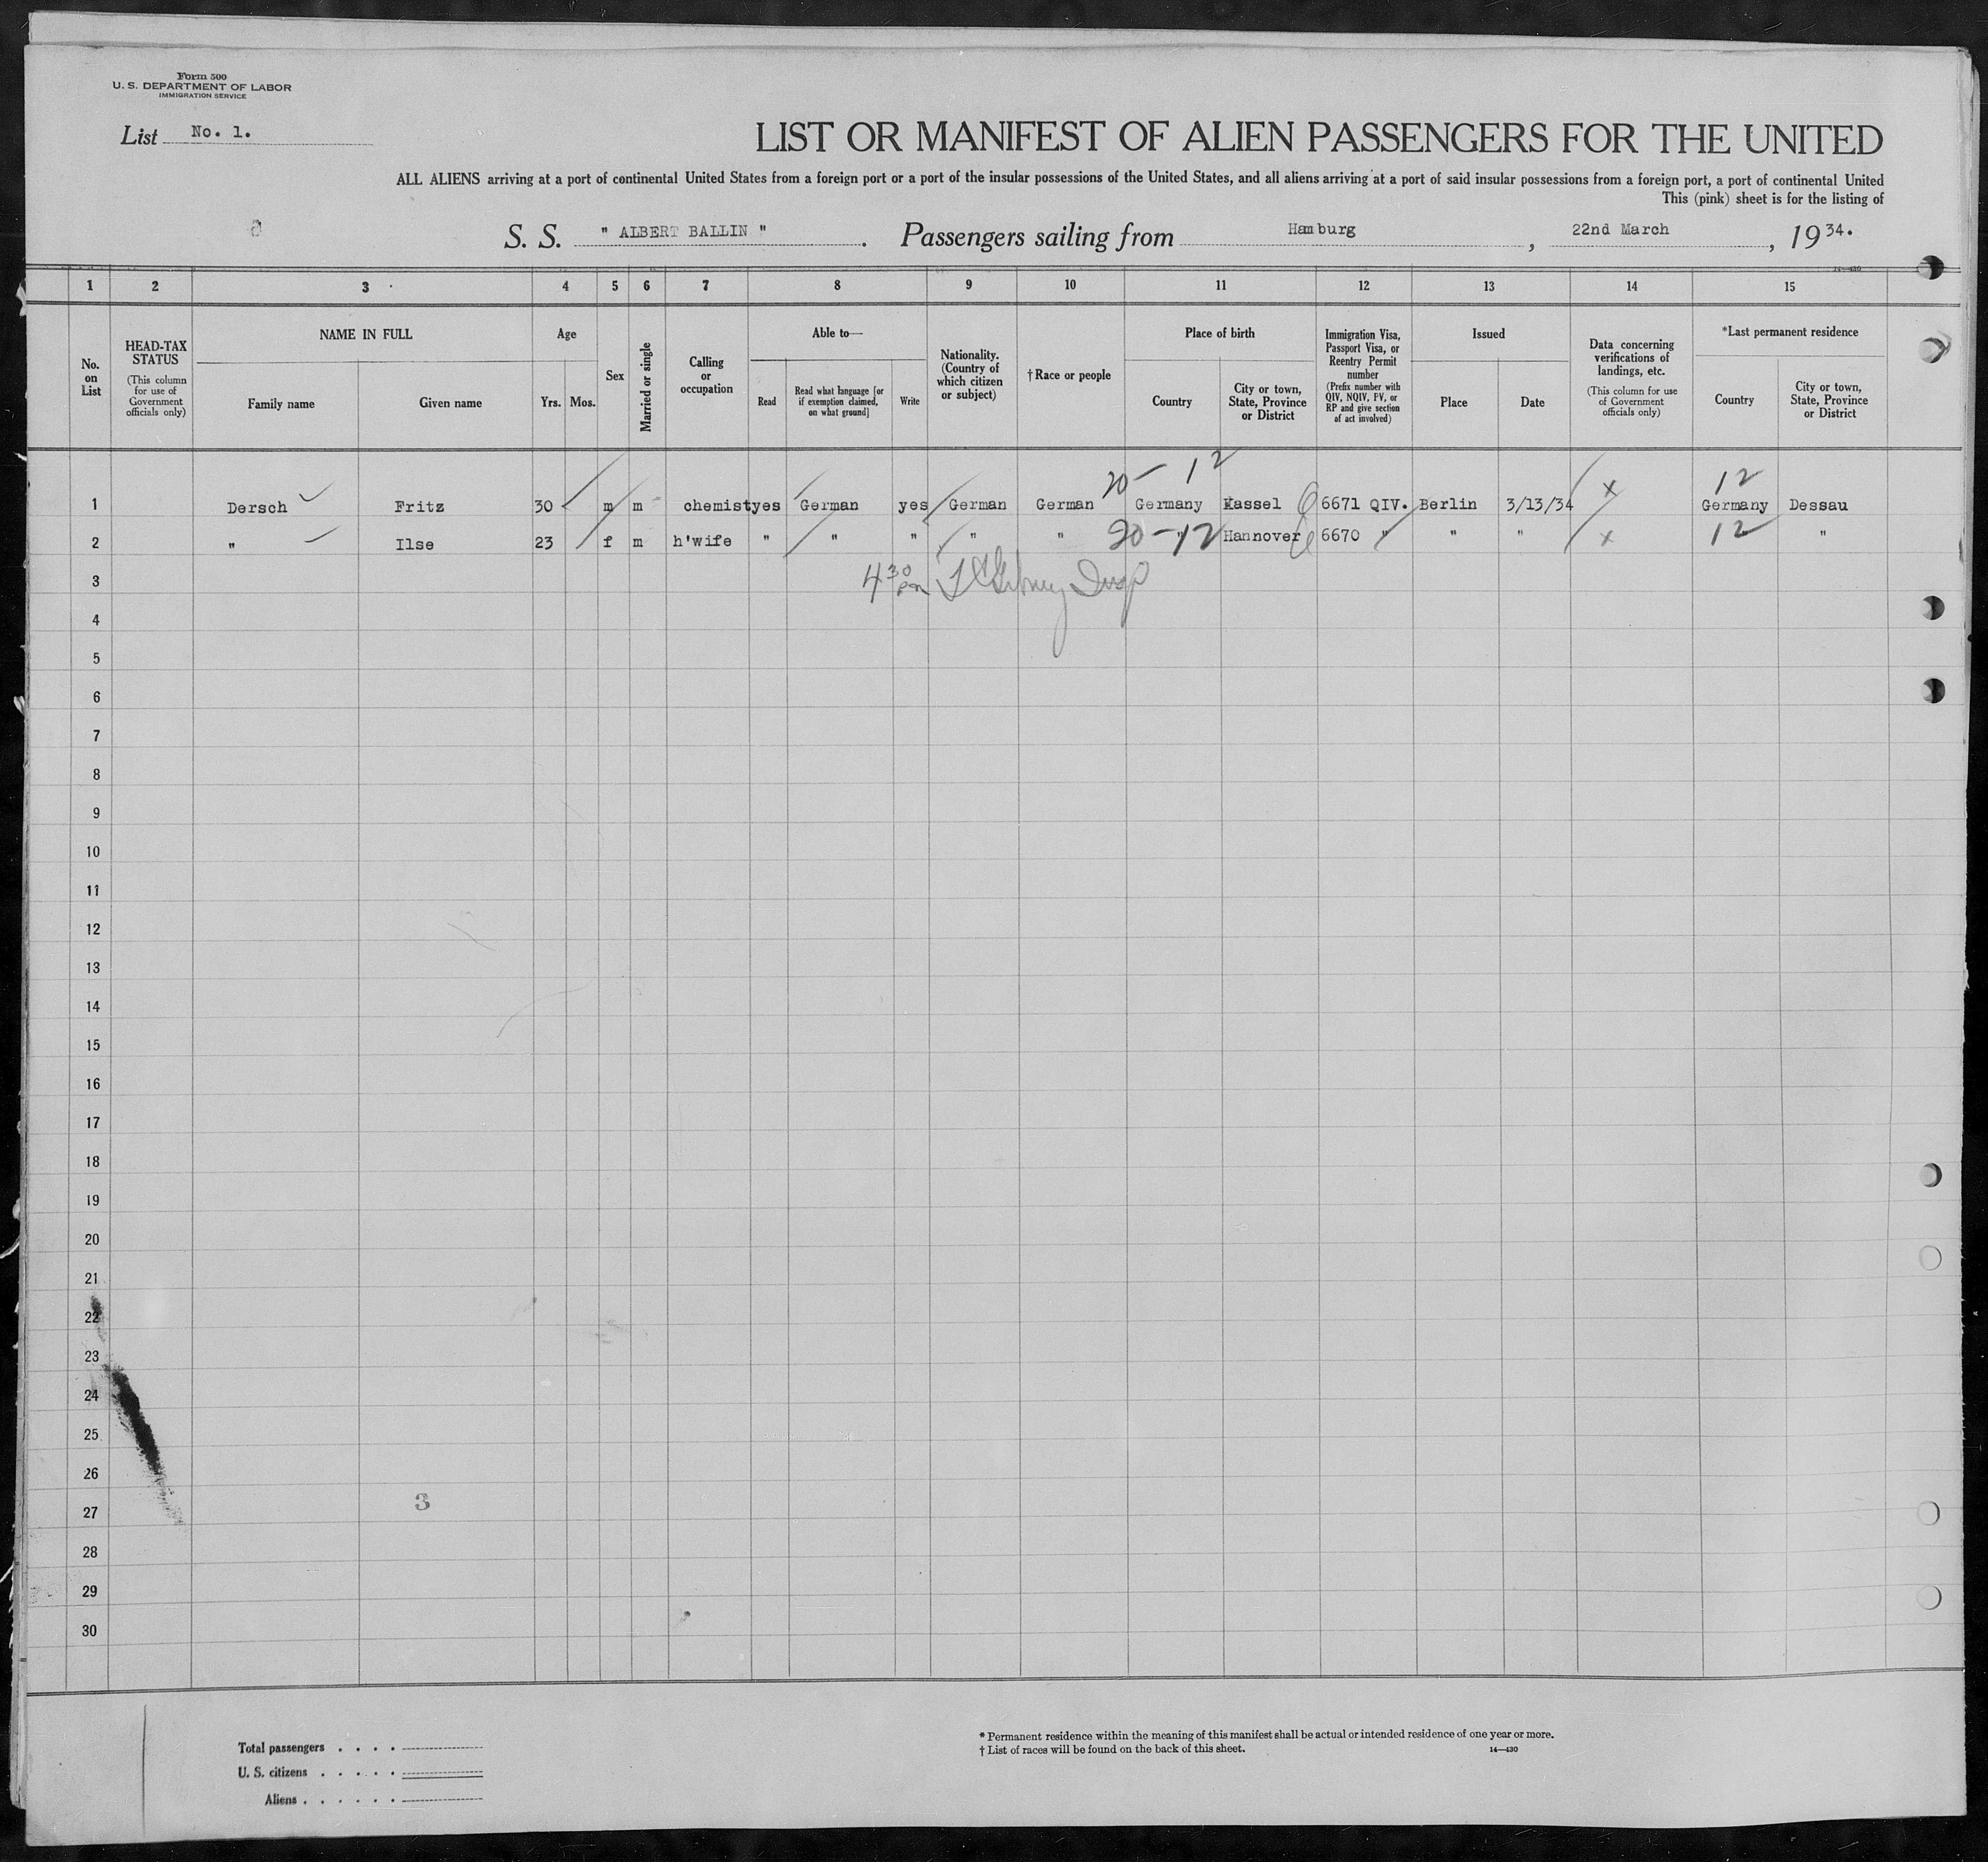 Form 500
U. S. DEPARTMENT OF LABOR
IMMIGRATION SERVICE
List No. 1.
LIST OR MANIFEST OF ALIEN PASSENGERS FOR THE UNITED
ALL ALIENS arriving at a port of continental United States from a foreign port or a port of the insular possessions of the United States, and all aliens arriving at a port of said insular possessions from a foreign port, a port of continental United
This (pink) sheet is for the listing of
S. S. " ALBERT BALLIN " . Passengers sailing from Hamburg , 22nd March , 19 34.
14—430
1 2 3 4 5 6 7 8 9 10 11 12 13 14 15
No. on List
HEAD-TAX STATUS
(This column for use of Government officials only)
NAME IN FULL
Family name
Given name
Age
Yrs. Mos.
Sex
Married or single
Calling or occupation
Able to—
Read
Read what language [or if exemption claimed, on what ground]
Write
Nationality. (Country of which citizen or subject)
†Race or people
Place of birth
Country
City or town, State, Province or District
Immigration Visa, Passport Visa, or Reentry Permit number
(Prefix number with QIV, NQIV, PV, or RP and give section of act involved)
Issued
Place
Date
Data concerning verifications of landings, etc.
(This column for use of Government officials only)
*Last permanent residence
Country
City or town, State, Province or District
20 – 12 12
1 Dersch Fritz 30 m m chemist yes German yes German German Germany Kassel 6671 QIV. Berlin 3/13/34 x Germany Dessau
2 " Ilse 23 f m h'wife " " " " " 20 – 12 " Hannover 6670 " " " x 12 "
3 4 30 pm
4
5
6
7
8
9
10
11
12
13
14
15
16
17
18
19
20
21
22
23
24
25
26
3
27
28
29
30
Total passengers . . . .
U. S. citizens . . . . .
Aliens . . . . . .
* Permanent residence within the meaning of this manifest shall be actual or intended residence of one year or more.
† List of races will be found on the back of this sheet.
14—430